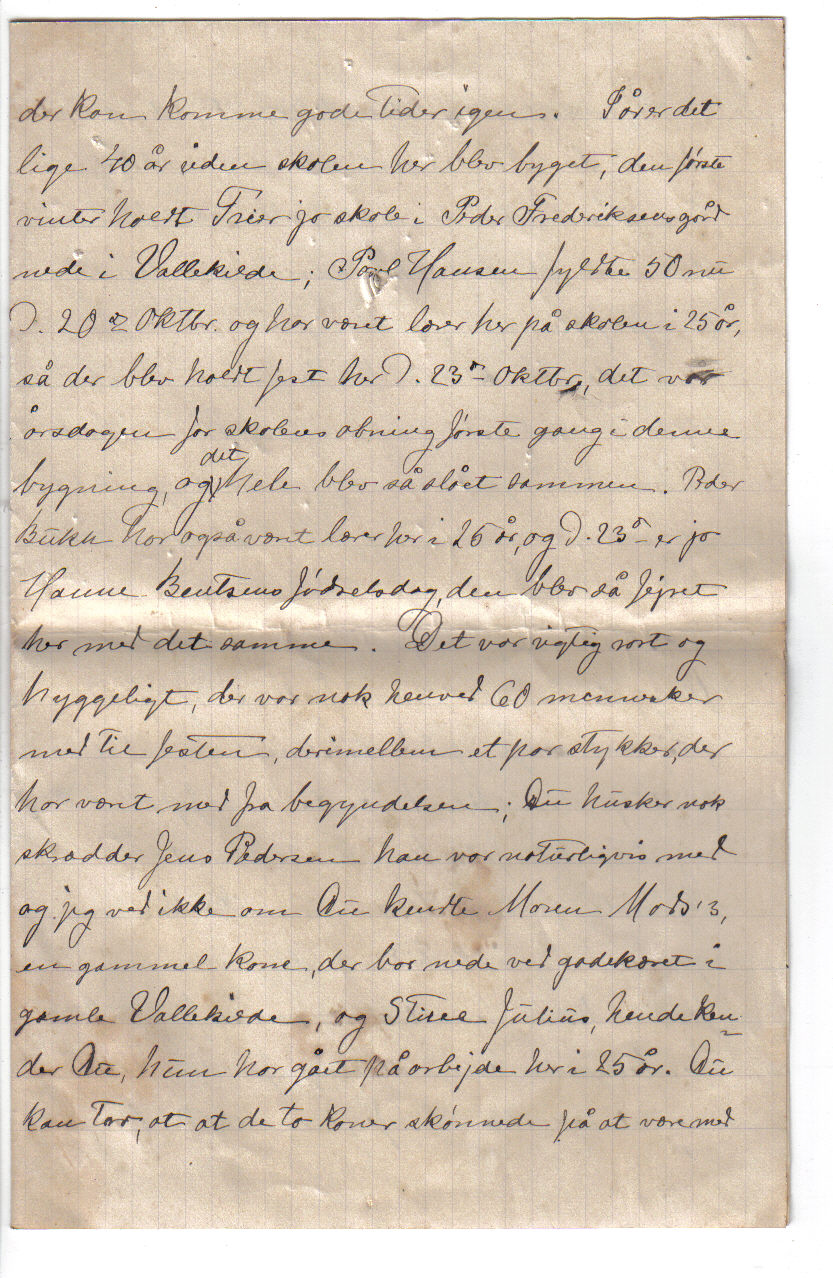 der kan komme gode tider igen. I år er det
lige 40 år siden skolen her blev bygget, den første
vinter holdt Trier jo skole i Peder Frederiksens gård
nede i Vallekilde; Povl Hansen fyldte 50 nu
D. 20 Oktbr. og har været lærer her på skolen i 25 år,
så der blev holdt fest her D. 23 Oktbr., det var
årsdagen for skolens åbning første gang i denne
bygning, og det hele blev så slået sammen. Peder
Bukh har også været lærer her i 26 år, og D. 23 er jo
Hanne Bentsens fødselsdag, den blev så fejret
her med det samme. Det var vigtig rart og
hyggeligt, der var nok henved 60 mennesker
med til festen, derimellem et par stykker, der
har været med fra begyndelsen; Du husker nok
skrædder Jens Pedersen han var naturligvis med
og jeg ved ikke om Du kendte Maren Mads's,
en gammel kone, der bor nede ved gadekæret i
gamle Vallekilde, og Stine Julius, hende ken-
der Du, hun har gået på arbejde her i 25 år. Du
kan tro, at at de to koner skønnede på at være med